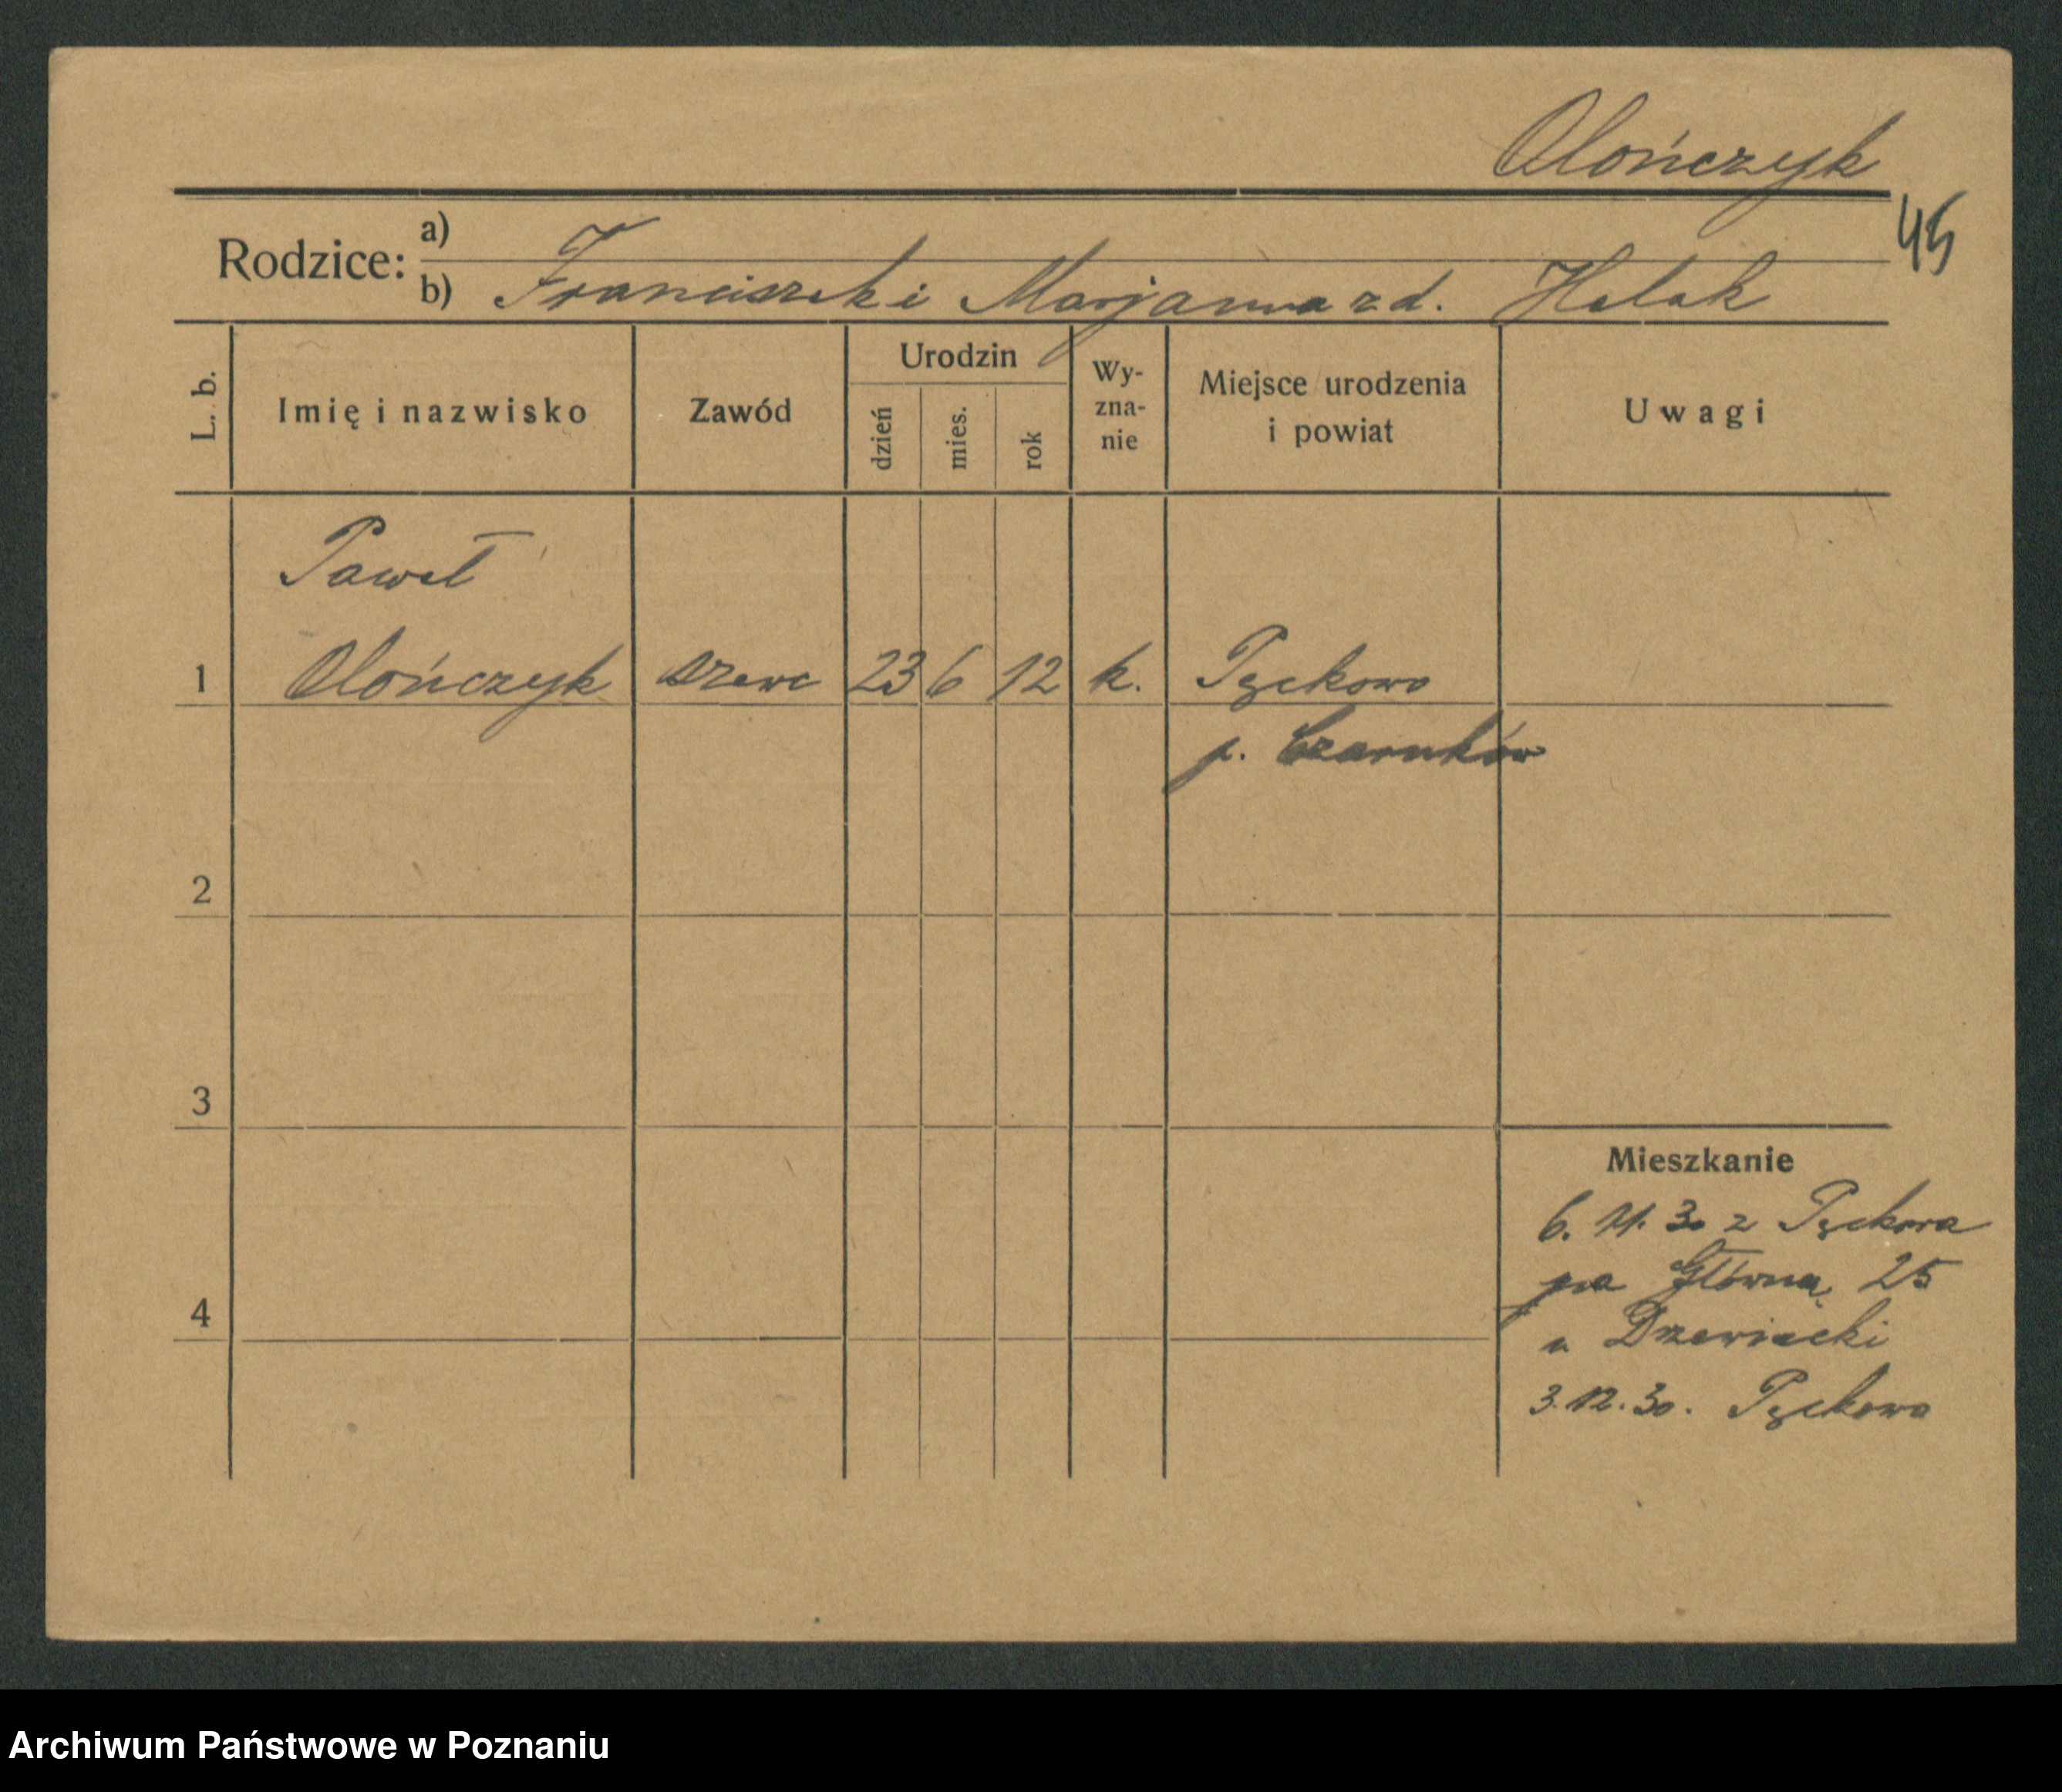 Olończyk
45
Rodzice: a)
b) Franciszek i Marjanna z d. Helak
L. b. Imię i nazwisko Zawód Urodzin dzień mies. rok Wy-zna-nie Miejsce urodzenia i powiat Uwagi
Paweł
1 Olończyk szewc 23 6 12 k. Pęckowo
p. Czarnków
2
3
Mieszkanie
6. 11. 30 z Pęckowa
na Główną 25
4
u Drzewiecki
3. 12. 30. Pęckowo
Archiwum Państwowe w Poznaniu